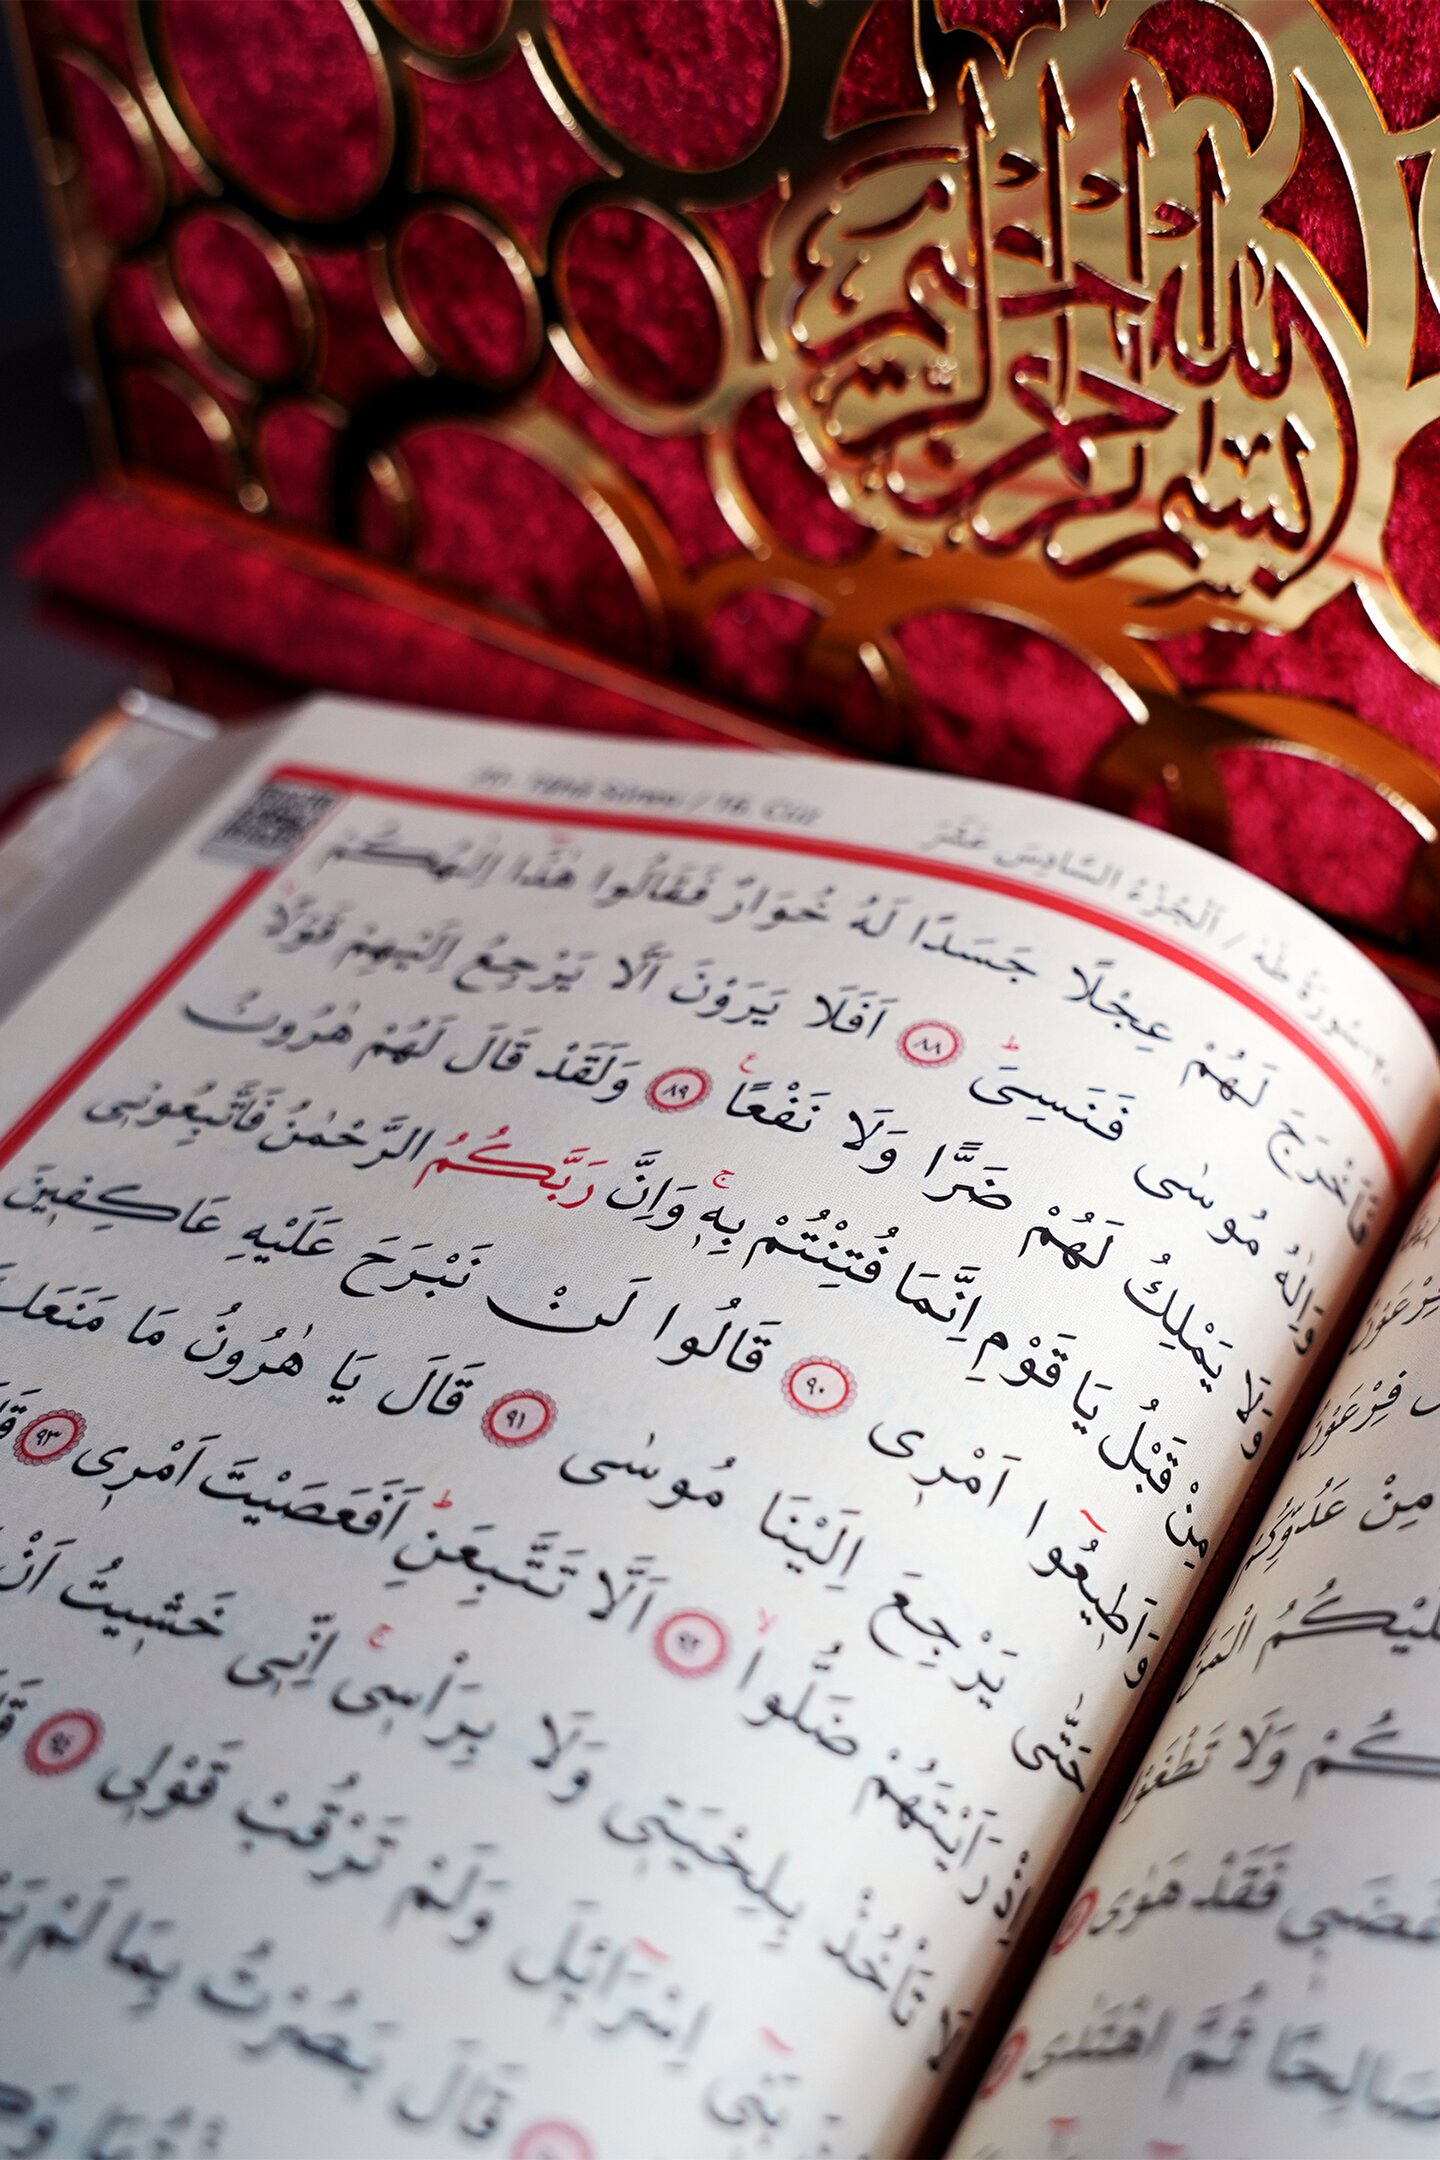 بسم الله الرحمن الرحيم
20 - Tâhâ Sûresi / 16. Cüz
٢٠-سُورَةُ طٰهٰ / اَلْجُزْءُ السَّادِسَ عَشَرَ
فَاَخْرَجَ لَهُمْ عِجْلًا جَسَدًا لَهُ خُوَارٌ فَقَالُوا هٰذَٓا اِلٰهُكُمْ
وَاِلٰهُ مُوسٰى فَنَسِىَۜ ﴿٨٨﴾ اَفَلَا يَرَوْنَ اَلَّا يَرْجِعُ اِلَيْهِمْ قَوْلًاۙ
وَلَا يَمْلِكُ لَهُمْ ضَرًّا وَلَا نَفْعًاۚ ﴿٨٩﴾ وَلَقَدْ قَالَ لَهُمْ هٰرُونُ
مِنْ قَبْلُ يَا قَوْمِ اِنَّمَا فُتِنْتُمْ بِهٖۚ وَاِنَّ رَبَّكُمُ الرَّحْمٰنُ فَاتَّبِعُونٖى
وَاَطٖيعُٓوا اَمْرٖى ﴿٩٠﴾ قَالُوا لَنْ نَبْرَحَ عَلَيْهِ عَاكِفٖينَ
حَتّٰى يَرْجِعَ اِلَيْنَا مُوسٰى ﴿٩١﴾ قَالَ يَا هٰرُونُ مَا مَنَعَكَ
اِذْ رَاَيْتَهُمْ ضَلُّواۙ ﴿٩٢﴾ اَلَّا تَتَّبِعَنِۜ اَفَعَصَيْتَ اَمْرٖى ﴿٩٣﴾
لَا تَأْخُذْ بِلِحْيَتٖى وَلَا بِرَأْسٖىۚ اِنّٖى خَشٖيتُ اَنْ
بَنٖٓى اِسْرَٓائٖلَ وَلَمْ تَرْقُبْ قَوْلٖى ﴿٩٤﴾
قَالَ بَصُرْتُ بِمَا لَمْ
فِرْعَوْنُ
فِرْعَوْنُ
مِنْ عَدُوِّكُمْ
عَلَيْكُمُ الْمَنَّ
وَلَا تَطْغَوْا
غَضَبٖى فَقَدْ هَوٰى
صَالِحًا ثُمَّ اهْتَدٰى